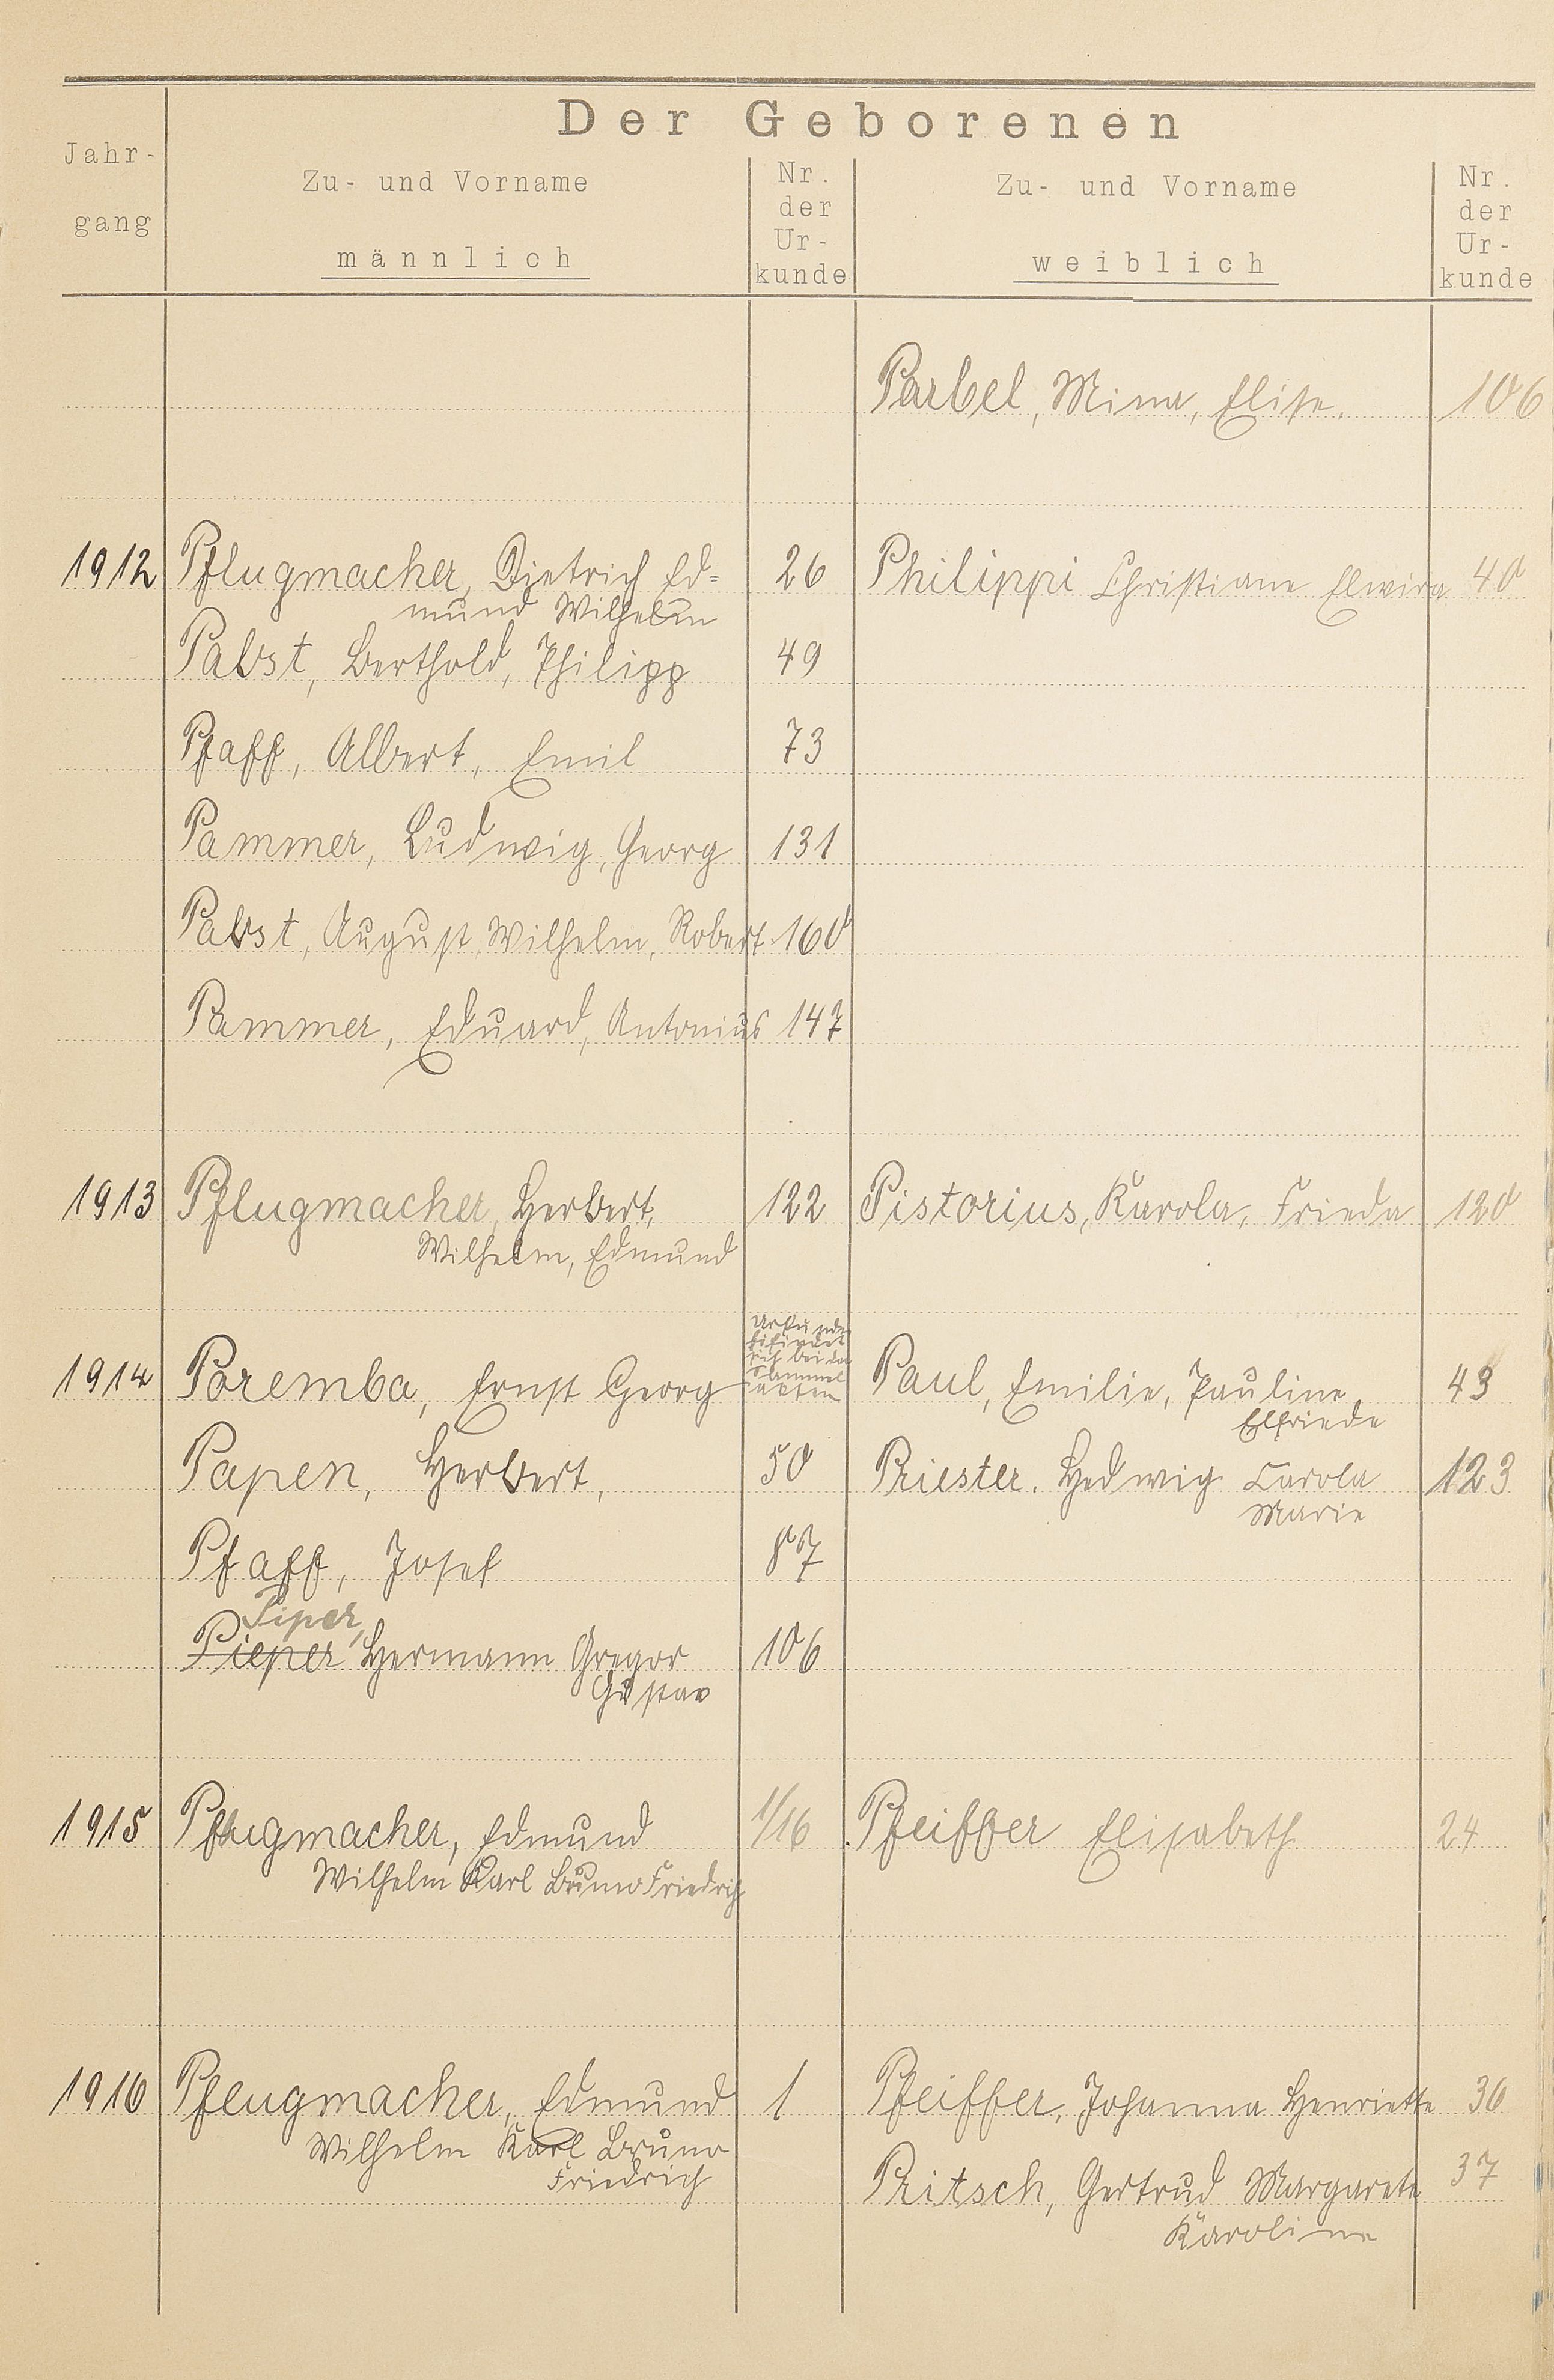 Der Geborenen
Jahr-
gang
Zu- und Vorname
männlich
Nr.
der
Ur-
kunde
Zu- und Vorname
weiblich
Nr.
der
Ur-
kunde
Parbel, Mina, Elise. 106
1912 Pflugmacher, Dietrich Ed= 26 Philippi Christiane Elwira 40
mund Wilhelm
Pabst, Berthold, Philipp 49
Pfaff, Albert, Emil 73
Pammer, Ludwig, Georg 131
Pabst, August, Wilhelm, Robert. 160
Pammer, Eduard, Antonius 147
1913 Pflugmacher, Herbert, 122 Pistorius, Karola, Frieda 120
Wilhelm, Edmund
Urkunde
befindet
sich bei den
Sammel
akten
1914 Poremba, Ernst Georg Paul, Emilie, Pauline 43
Elfriede
Papen, Herbert, 50 Priester. Hedwig Carola 123
Marie
Pfaff, Josef 87
Piper,
Pieper Hermann Gregor 106
Gustav
1915 Pflugmacher, Edmund 1/16 Pfeiffer Elisabeth 24
Wilhelm Karl Bruno Friedrich
1916 Pflugmacher, Edmund 1 Pfeiffer, Johanna Henriette 36
Wilhelm Karl Bruno
Friedrich
Pritsch, Gertrud Margarete 37
Karoline